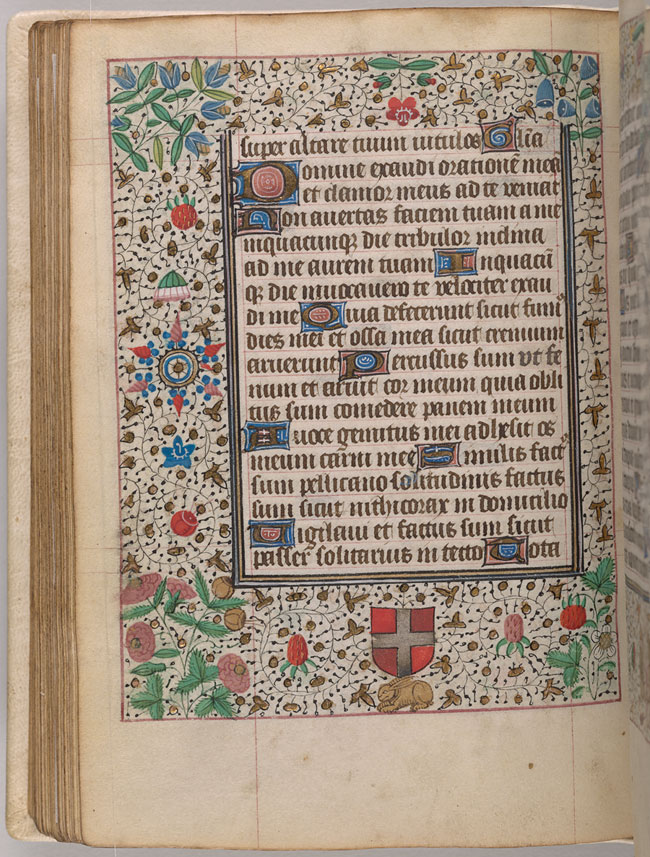 super altare tuum uitulos Glīa
Domine exaudi orationē mea
et clamor meus ad te ueniat
Non auertas faciem tuam a me
inquacunqꝫ die tribulor inclina
ad me aurem tuam In quacū
qꝫ die inuocauero te velociter exau
di me Quia defecerunt sicut fumꝰ
dies mei et ossa mea sicut cremium
aruerunt Percussus sum vt fe
num et aruit cor meum quia obli
tus sum comedere panem meum
A uoce gemitus mei adhesit os
meum carni mee Similis factꝰ
sum pellicano solitudinis factus
sum sicut nithicorax in domicilio
Vigilaui et factus sum sicut
passer solitarius in tecto Tota